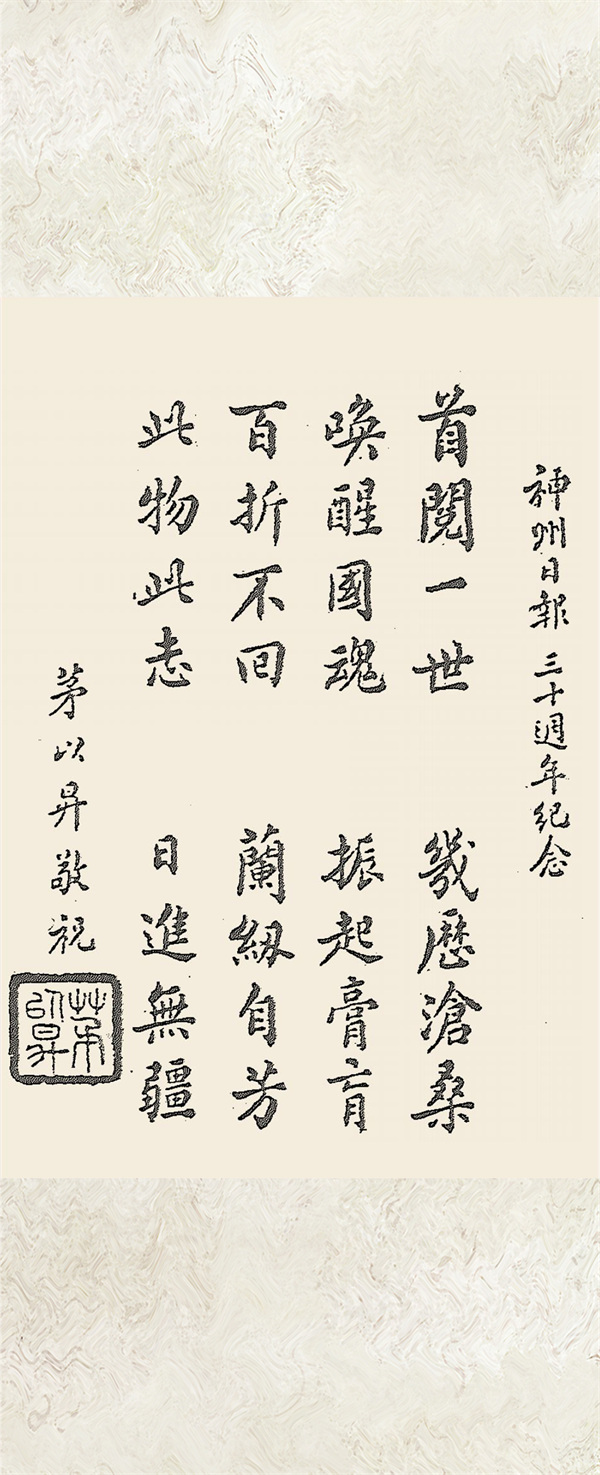 神州日報 三十週年紀念
首閱一世 幾歷滄桑
喚醒國魂 振起膏肓
百折不回 蘭紉自芳
此物此志 日進無疆
茅以昇敬祝
茅以昇